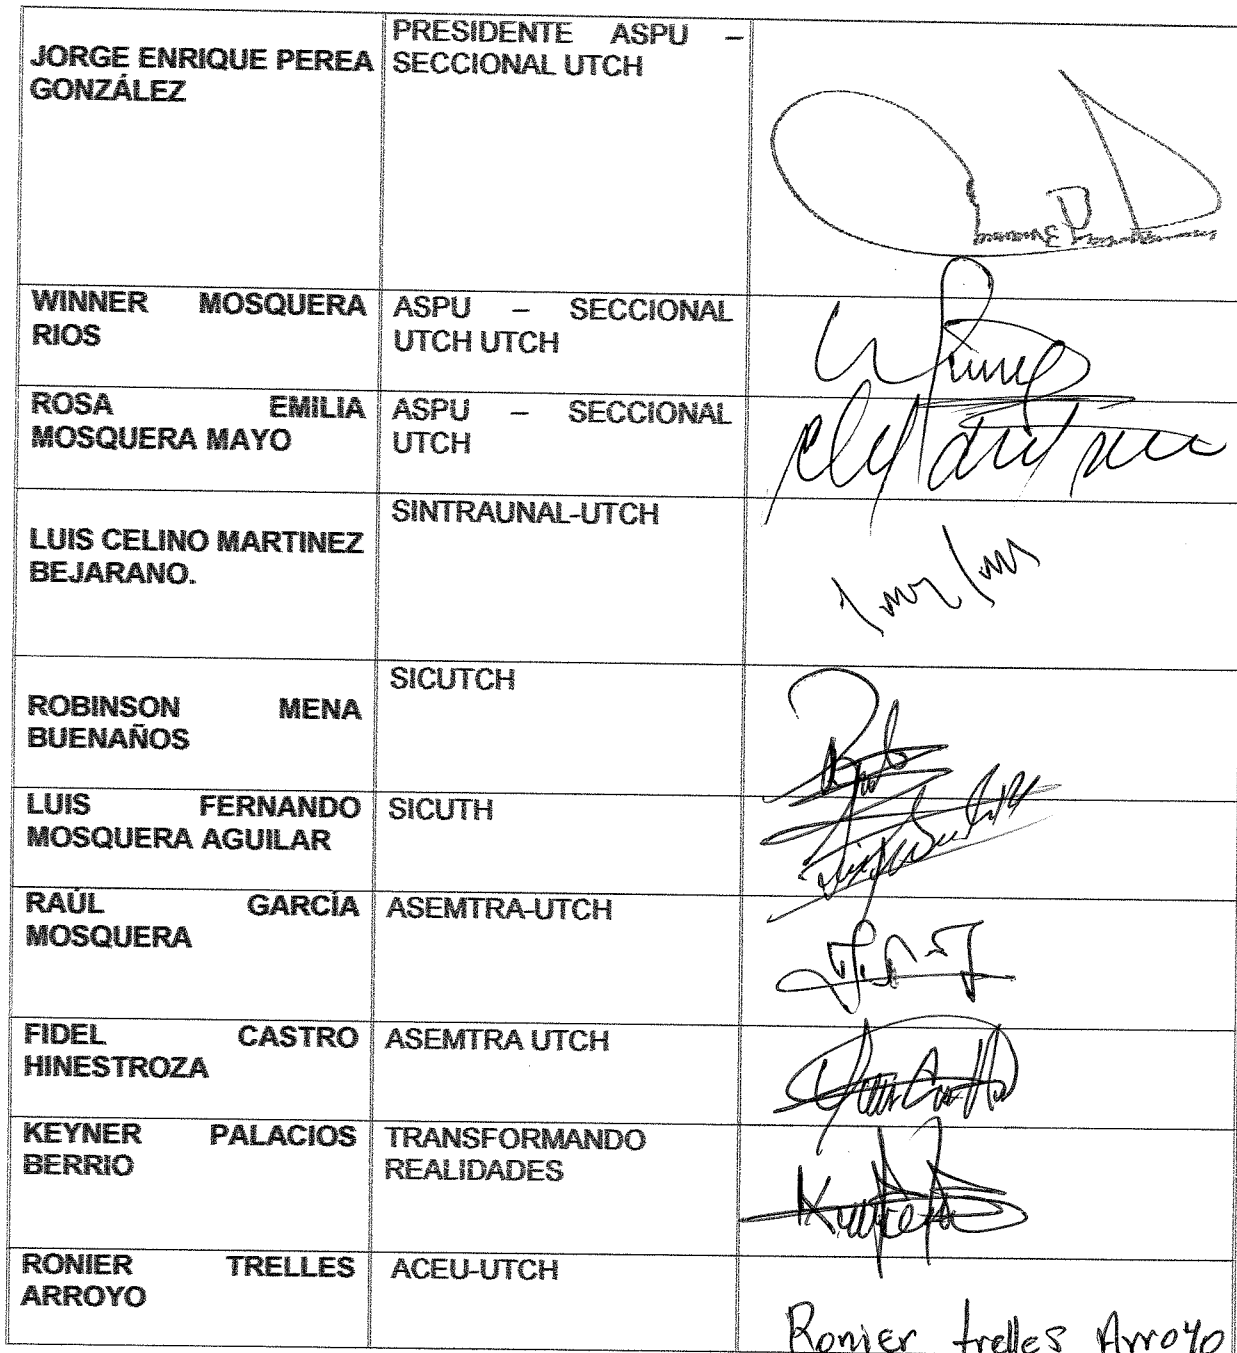 JORGE ENRIQUE PEREA
GONZÁLEZ
PRESIDENTE ASPU –
SECCIONAL UTCH
WINNER MOSQUERA
RIOS
ASPU – SECCIONAL
UTCH UTCH
ROSA EMILIA
MOSQUERA MAYO
ASPU – SECCIONAL
UTCH
LUIS CELINO MARTINEZ
BEJARANO.
SINTRAUNAL-UTCH
ROBINSON MENA
BUENAÑOS
SICUTCH
LUIS FERNANDO
MOSQUERA AGUILAR
SICUTH
RAÚL GARCÍA
MOSQUERA
ASEMTRA-UTCH
FIDEL CASTRO
HINESTROZA
ASEMTRA UTCH
KEYNER PALACIOS
BERRIO
TRANSFORMANDO
REALIDADES
RONIER TRELLES
ARROYO
ACEU-UTCH
Ronier trelles Arroyo